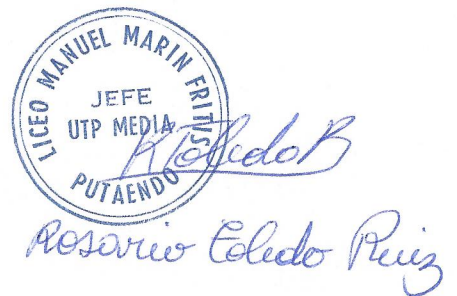 LICEO MANUEL MARIN FRITIS
JEFE
UTP MEDIA
PUTAENDO
Rosario Toledo Ruiz